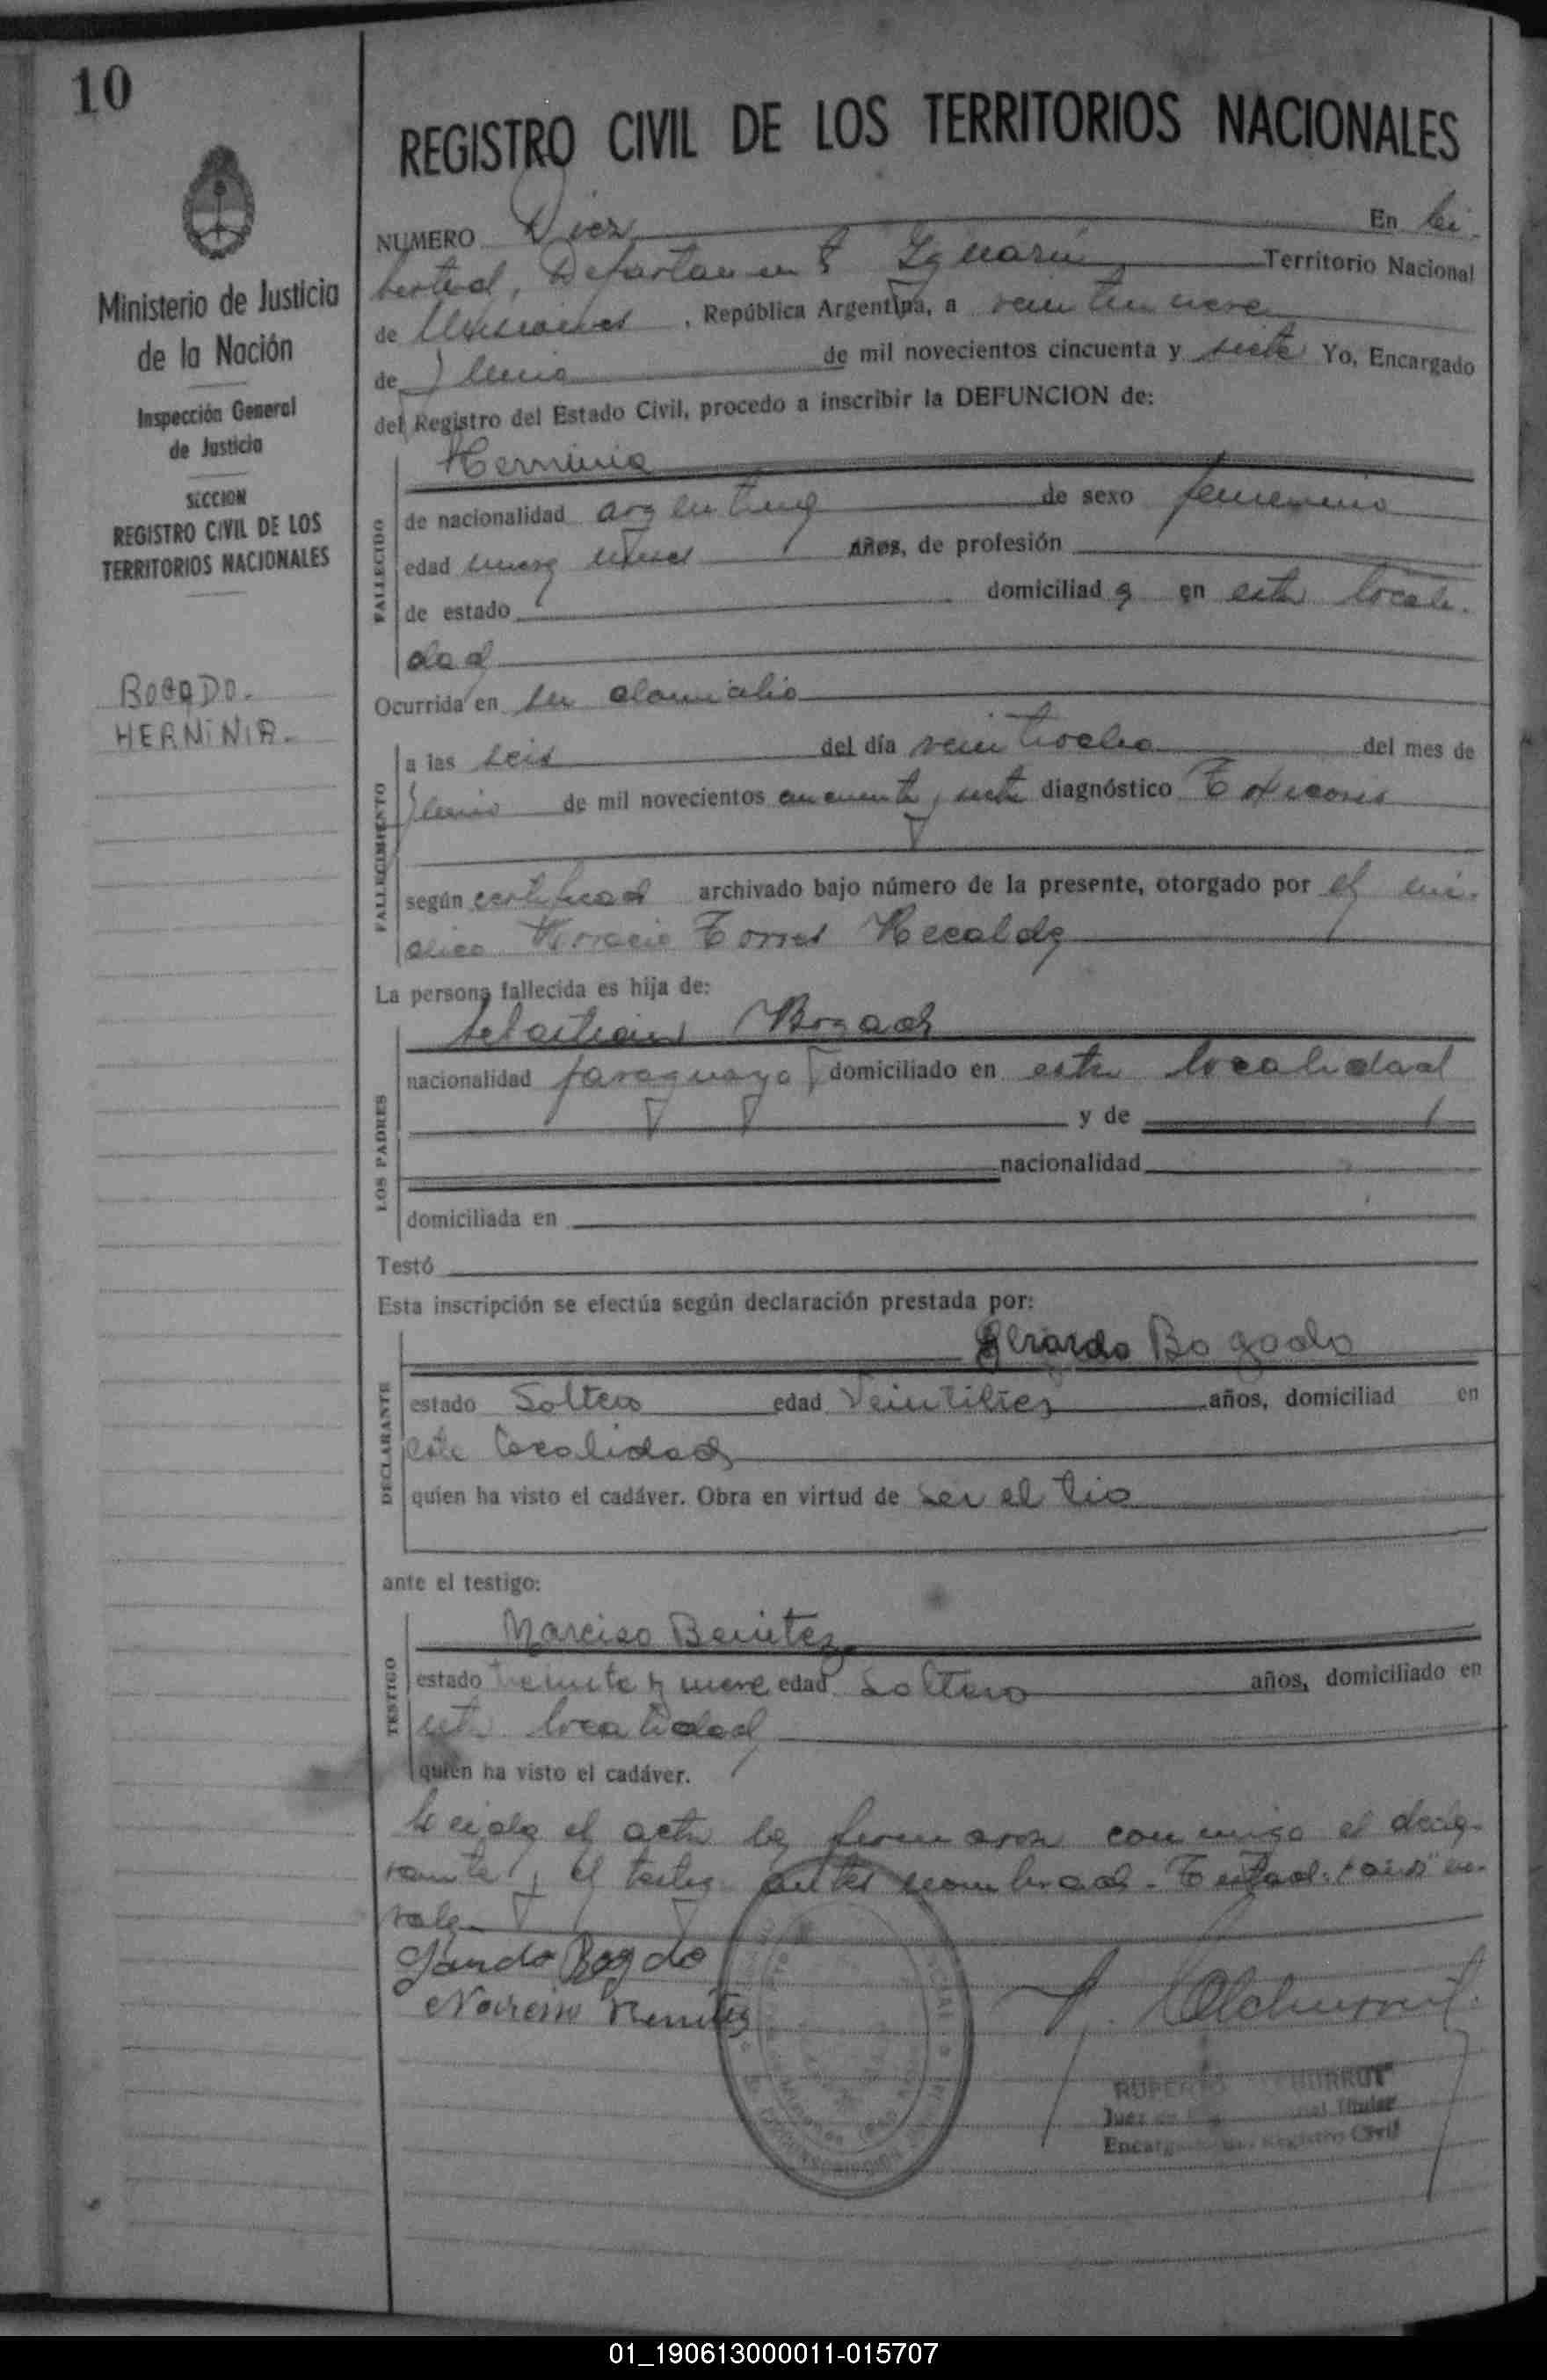 10
Ministerio de Justicia
de la Nación
Inspección General
de Justicia
SECCION
REGISTRO CIVIL DE LOS
TERRITORIOS NACIONALES
BOGADO.
HERNINIA.
REGISTRO CIVIL DE LOS TERRITORIOS NACIONALES
NUMERO Diez En Li-
bertad, Departamento Iguazú Territorio Nacional
de Misiones, República Argentina, a veintinueve
de Junio de mil novecientos cincuenta y siete Yo, Encargado
del Registro del Estado Civil, procedo a inscribir la DEFUNCION de:
Herminia
FALLECIDO
de nacionalidad argentina de sexo femenino
edad nueve años, de profesión
de estado domiciliada en esta locali-
dad
Ocurrida en su domicilio
FALLECIMIENTO
a las seis del día veintiocho del mes de
Junio de mil novecientos cincuenta y siete diagnóstico Toxicosis
según certificado archivado bajo número de la presente, otorgado por el mé-
dico Horacio Torres Recalde
La persona fallecida es hija de:
LOS PADRES
Sebastian Bogado
nacionalidad paraguaya domiciliado en esta localidad
y de
nacionalidad
domiciliada en
Testó
Esta inscripción se efectúa según declaración prestada por:
DECLARANTE
Gerardo Bogado
estado Soltero edad Veintitres años, domiciliad en
esta localidad
quien ha visto el cadáver. Obra en virtud de ser el tio
ante el testigo:
TESTIGO
Narciso Benitez
estado treinta y nueve edad soltero años, domiciliado en
esta localidad
quien ha visto el cadáver.
Leida el acta la firmaron conmigo el decla-
rante y el testigo antes nombrado. Testado: "años" no
vale
Gerardo Bogado
Narciso Benitez
Juez Titular
Encargado del Registro Civil
01_190613000011-015707